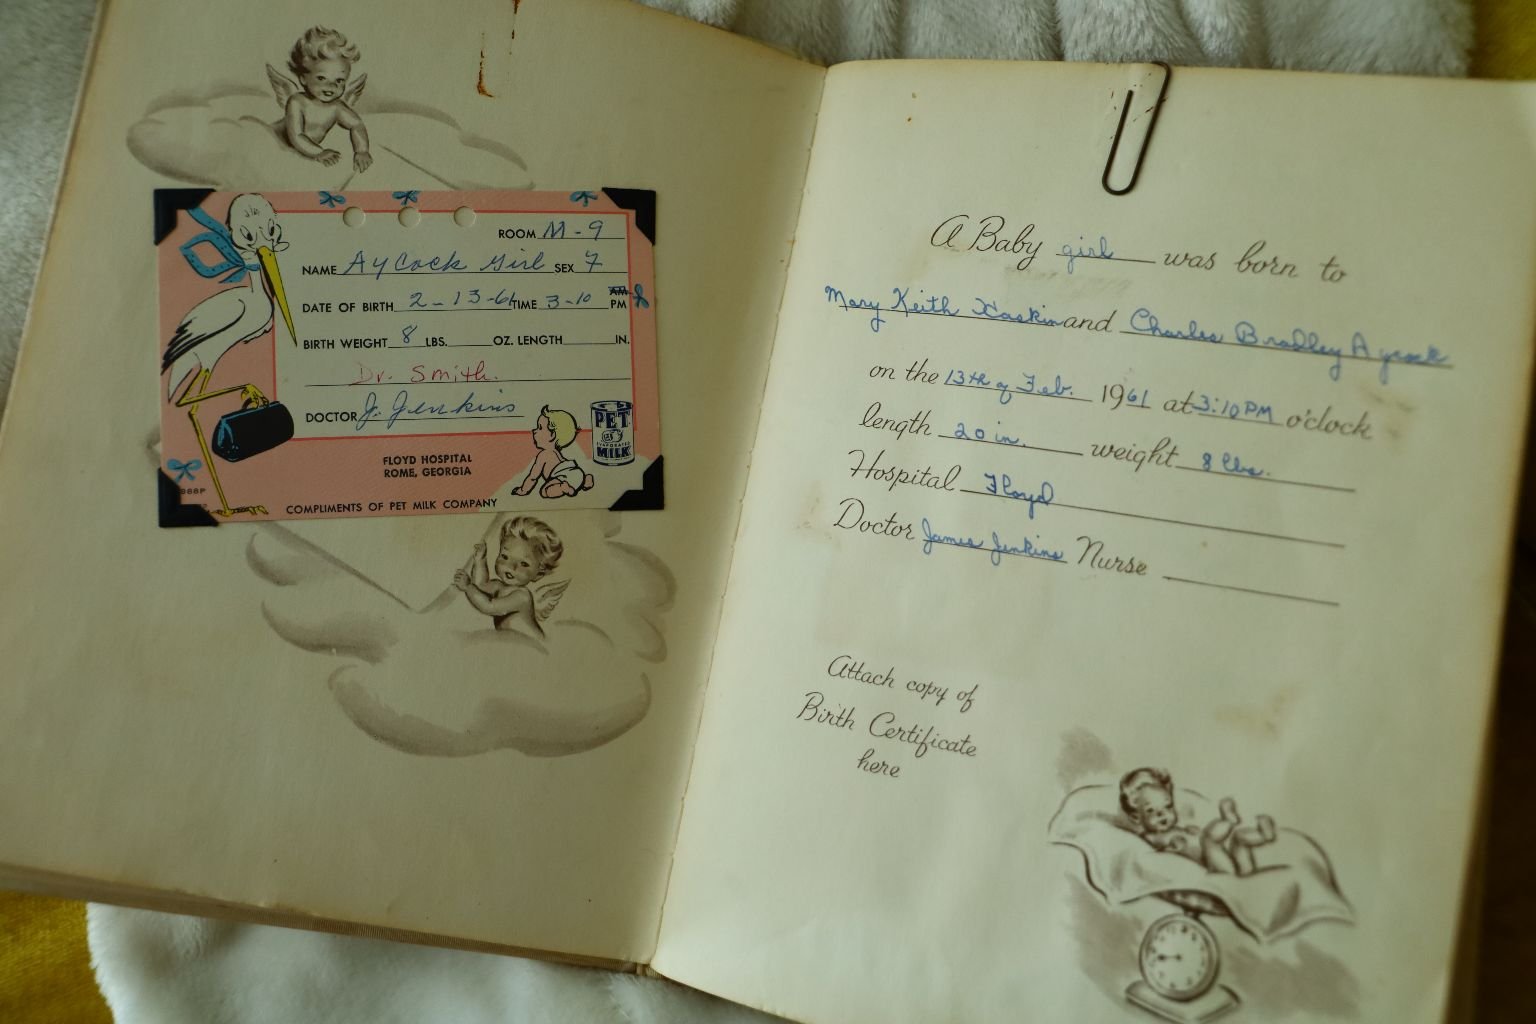 ROOM M-9
NAME Aycock Girl SEX F
DATE OF BIRTH 2-13-61 TIME 3-10 AM PM
BIRTH WEIGHT 8 LBS. OZ. LENGTH IN.
Dr. Smith.
DOCTOR J. Jenkins
PET
EVAPORATED
MILK
FLOYD HOSPITAL
ROME, GEORGIA
COMPLIMENTS OF PET MILK COMPANY
A Baby girl was born to
Mary Keith Haskin and Charles Bradley Aycock
on the 13th of Feb. 1961 at 3:10 PM o'clock
length 20 in. weight 8 lbs.
Hospital Floyd
Doctor James Jenkins Nurse
Attach copy of
Birth Certificate
here